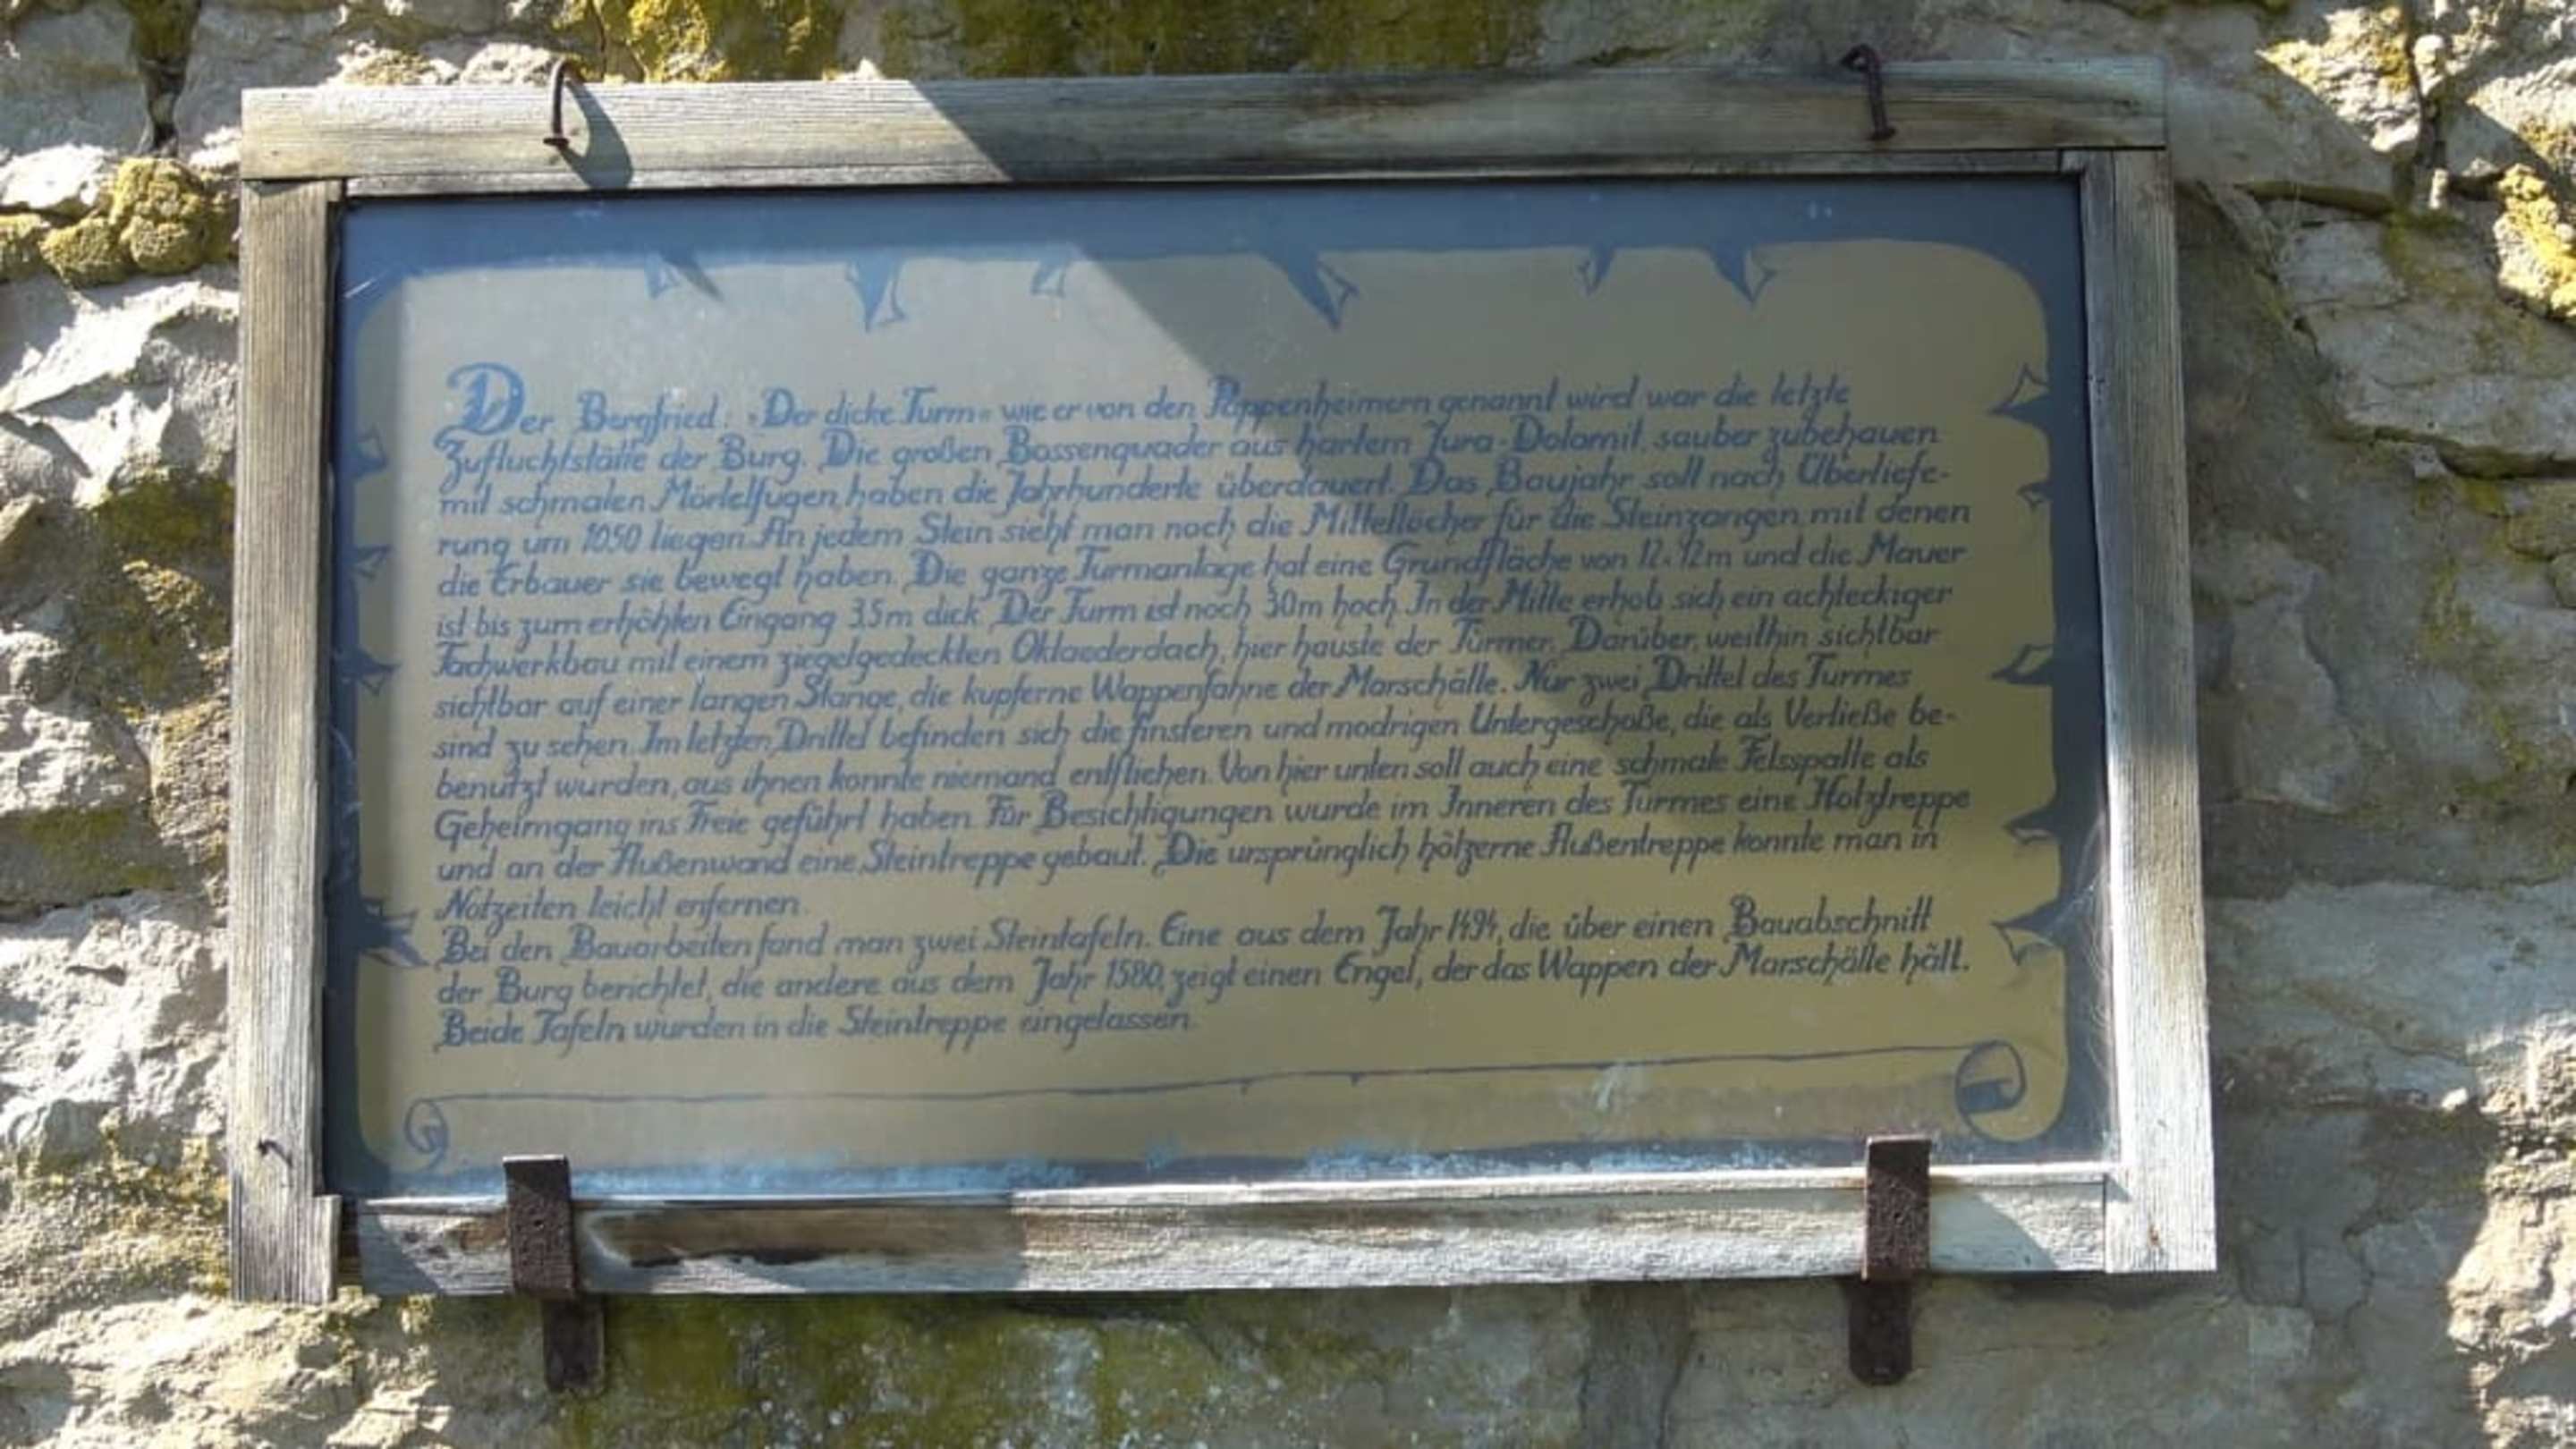 Der Bergfried: »Der dicke Turm« wie er von den Pappenheimern genannt wird war die letzte
Zufluchtstätte der Burg. Die großen Bossenquader aus hartem Jura-Dolomit, sauber zubehauen
mit schmalen Mörtelfugen, haben die Jahrhunderte überdauert. Das Baujahr soll nach Überliefe-
rung um 1050 liegen. An jedem Stein sieht man noch die Mittellöcher für die Steinzangen, mit denen
die Erbauer sie bewegt haben. Die ganze Turmanlage hat eine Grundfläche von 12×12m und die Mauer
ist bis zum erhöhten Eingang 3.5m dick. Der Turm ist noch 30m hoch. In der Mitte erhob sich ein achteckiger
Fachwerkbau mit einem ziegelgedeckten Oktaederdach, hier hauste der Türmer. Darüber, weithin sichtbar
sichtbar auf einer langen Stange, die kupferne Wappenfahne der Marschälle. Nur zwei Drittel des Turmes
sind zu sehen. Im letzten Drittel befinden sich die finsteren und modrigen Untergeschoße, die als Verließe be-
benutzt wurden, aus ihnen konnte niemand entfliehen. Von hier unten soll auch eine schmale Felsspalte als
Geheimgang ins Freie geführt haben. Für Besichtigungen wurde im Inneren des Turmes eine Holztreppe
und an der Außenwand eine Steintreppe gebaut. Die ursprünglich hölzerne Außentreppe konnte man in
Notzeiten leicht enfernen.
Bei den Bauarbeiten fand man zwei Steintafeln. Eine aus dem Jahr 1494, die über einen Bauabschnitt
der Burg berichtet, die andere aus dem Jahr 1580, zeigt einen Engel, der das Wappen der Marschälle hält.
Beide Tafeln wurden in die Steintreppe eingelassen.